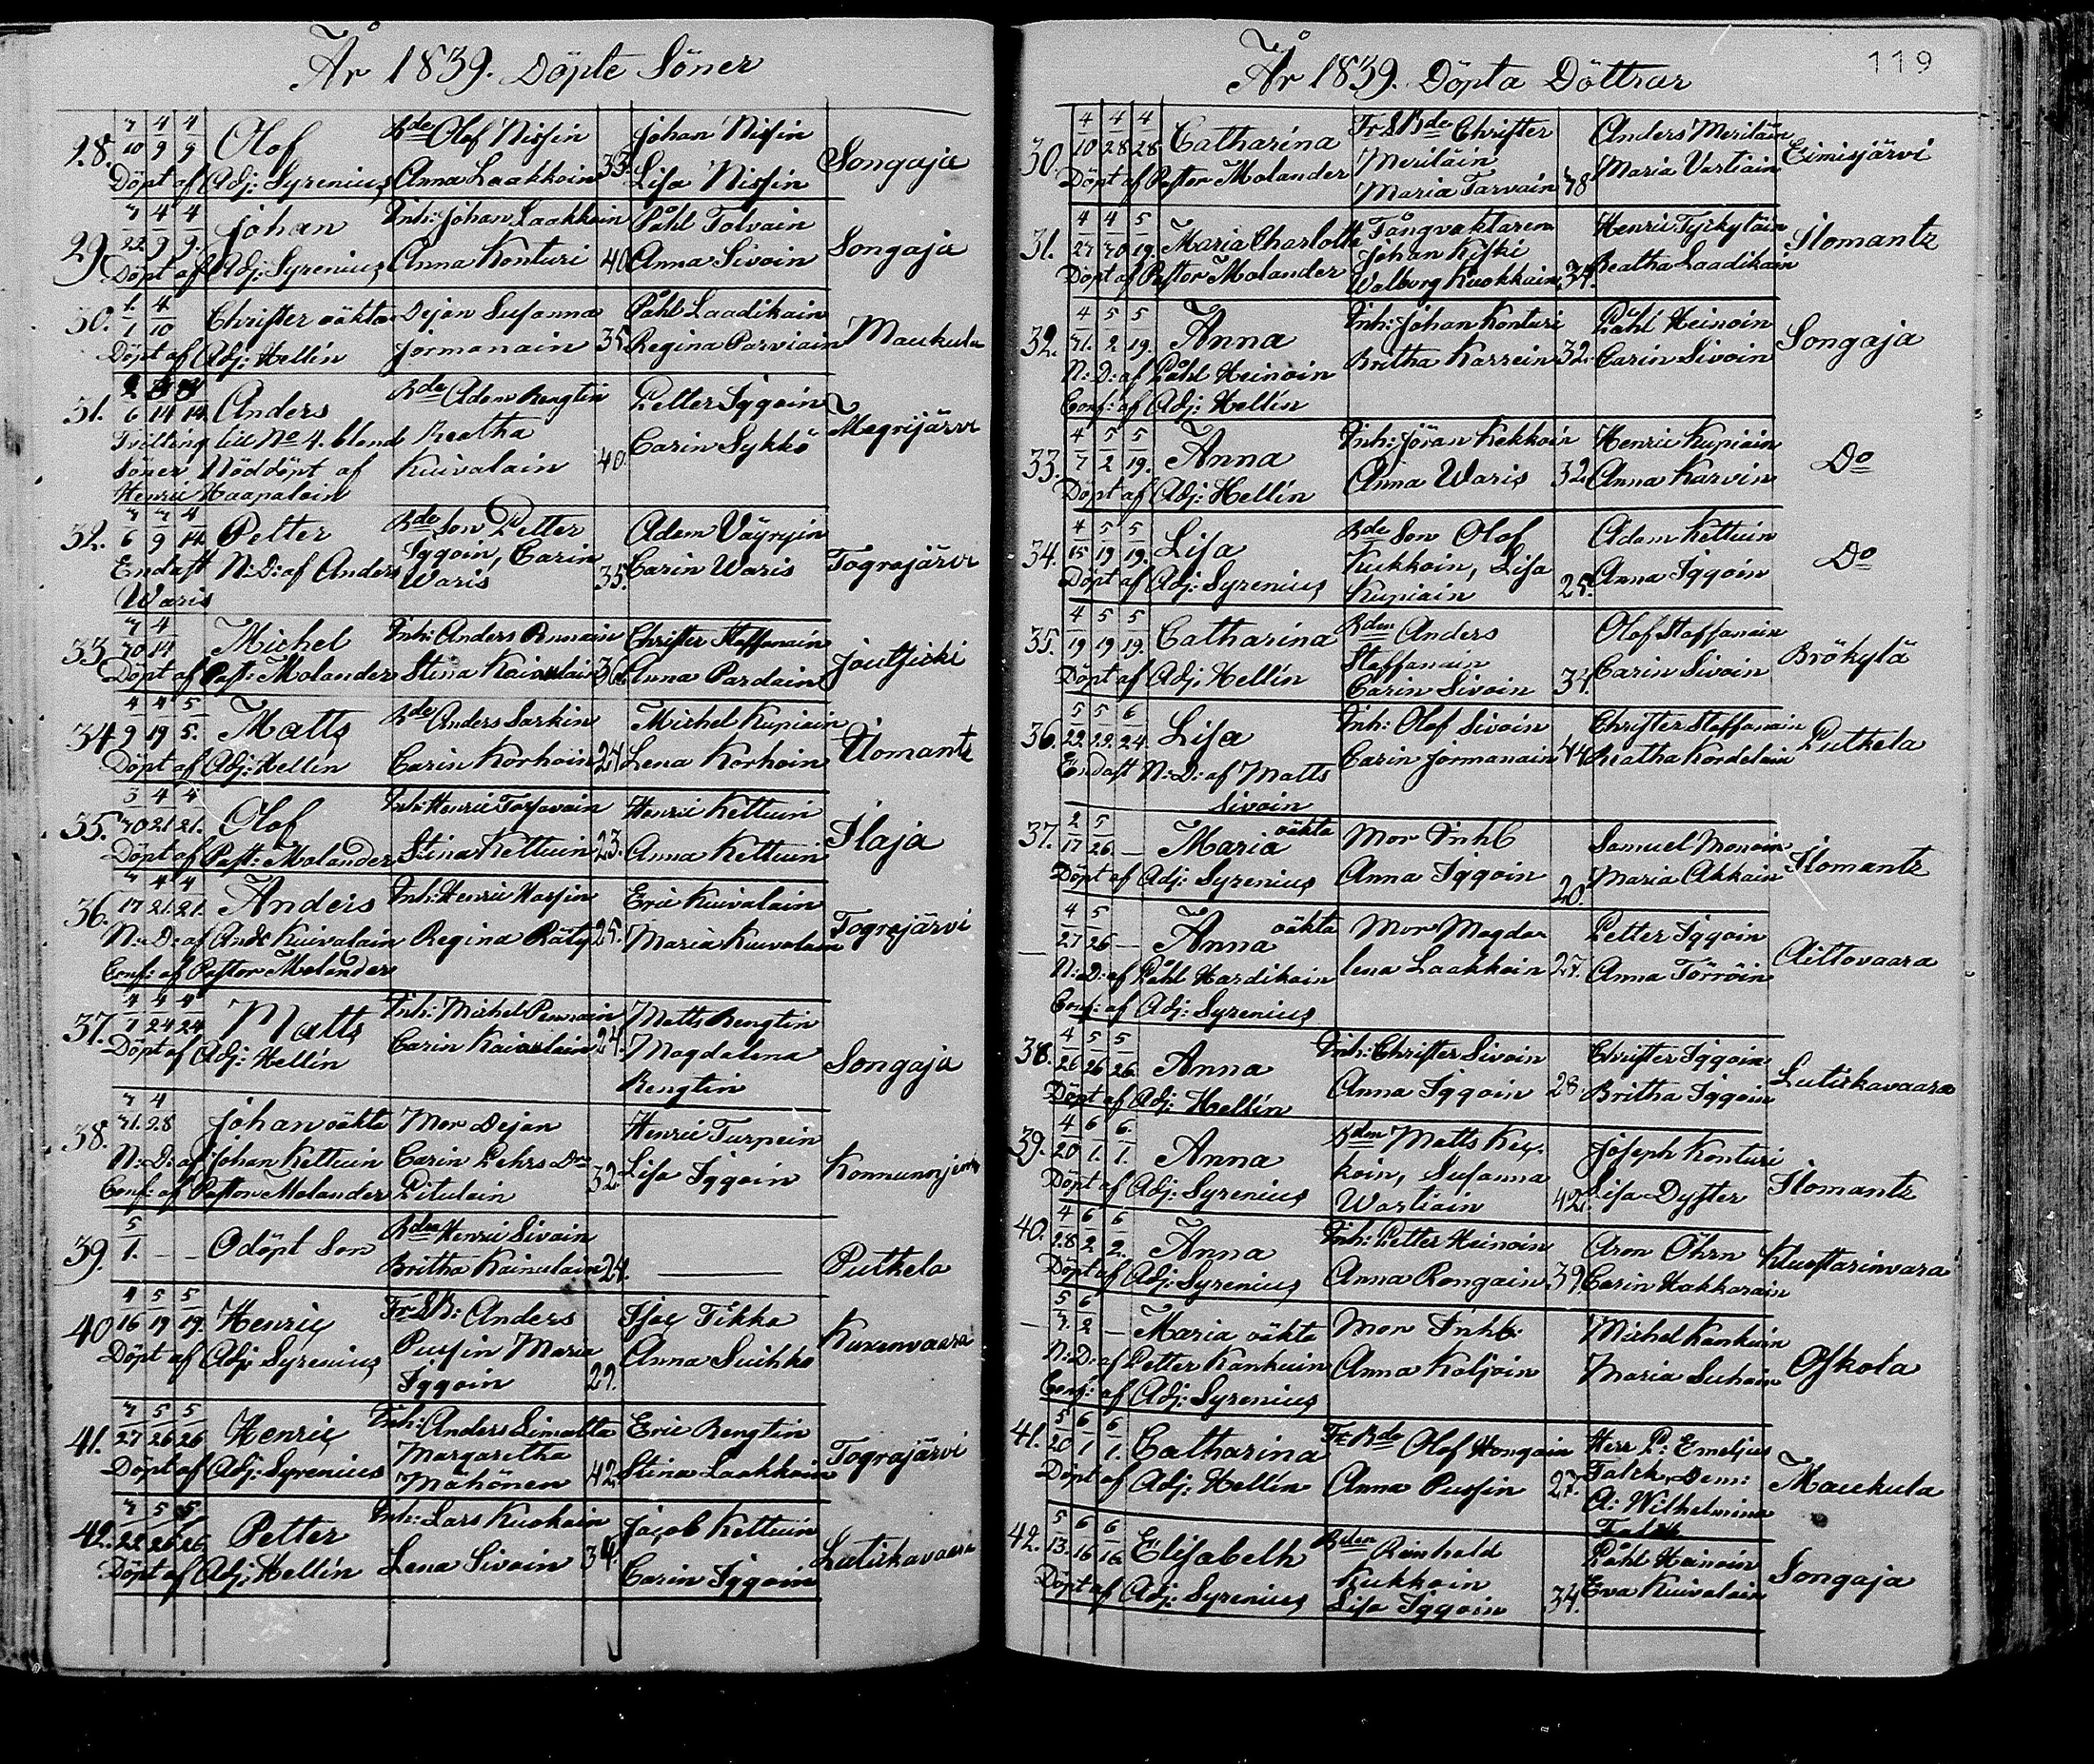 År 1839. Döpte Söner
28. 3/10 4/9 4/9 Olof Bde Olof Nissin 33. Johan Nissin Songaja
Döpt af Adj: Syrenius Anna Laakkoin Lisa Nissin
29. 3/22 4/9 4/9. Johan Inh: Johan Laakkoin 40 Påhl Tolvain Songaja
Döpt af Adj: Syrenius Anna Konturi Anna Sivoin
30. 1/1 4/10 Christer oäkta Dejan Susanna 35 Påhl Laadikain Maukula
Döpt af Adj: Hellin Jormanain Regina Parviain
31. 6 14 14 Anders Bde Adam Rengtin Petter Iggoin Megrijärvi
Tvilling till No 4. bland Beatha 40. Carin Sykkö
Söner Nöddöpt af Kuivalain
Henric Haapalain
32. 3/6 3/9 4/14 Petter Bde Son Petter Adam Väyryin Tograjärvi
Endast N: D: af Anders Iggoin, Carin 35. Carin Waris
Waris Waris
33. 3/30 4/14 Michel Inh: Anders 36. Christer Staffanain
Döpt af Past: Molander Stina Kainulain Anna Pardain
34 4/9 4/19 5/5. Matts Bde Anders Sarkin 24 Michel Kupiain Ilomants
Döpt af Adj: Hellin Carin Korhoin Lena Korhoin
35. 3/30 4/21 4/21. Olof Inh: Henric 23. Henric Kettuin Ilaja
Döpt af Past: Molander Stina Kettuin Anna Kettuin
36. 3/17 4/21 4/21. Anders Inh: Henric Hassin 25. Eric Kuivalain Tograjärvi
N: D: af Ands Kuivalain Regina Räty Maria Kuivalain
Conf: af Pastor Molander
37. 4/1 4/24 4/24 Matts Inh: Michel Pennain 24. Matts Rengtin Songaja
Döpt af Adj: Hellin Carin Kainulain Magdalena
Rengtin
38. 3/31 4/28 Johan oäkta Mor Dejan Henric Turpein
N: D: af Johan Kettuin Carin Pehrs Dr 32. Lisa Iggoin
Conf: af Pastor Molander Pitulain
39. 5/1. — — Odöpt Son Bden Henric Sivoin 24. — Putkela
Britha Kainulain
40 4/16 5/19 5/19. Henric Fr: S: B: Anders Isac Tikka Kuuxenvaara
Döpt af Adj: Syrenius Pussin Maria 29. Anna Suihko
Iggoin
41. 3/27 5/26 5/26 Henric Inh: Anders Limatta Eric Rengtin Tograjärvi
Döpt af Adj: Syrenius Margaretha 42. Stina Laakkoin
Mähönen
42. 3/22 5/26 5/26 Petter Inh: Lars Kuokain 34. Jacob Kettuin Lutiskavaara
Döpt af Adj: Hellin Lena Sivoin Carin Iggoin
119
År 1839. Döpta Döttrar
30. 4/10 4/28 4/28 Catharina Fr S Bde Christer Anders Meriläin Eimisjärvi
Döpt af Pastor Molander Meriläin Maria Vartiain
Maria Tarvain 38
31. 4/27 4/30 5/19. Maria Charlotta Fångvaktaren Henric Tyrkyläin Ilomants
Döpt af Pastor Molander Johan Kiski 34. Beatha Laadikain
Walborg Kuokkain
32. 4/31. 5/2 5/19. Anna Inh: Johan Konturi 32. Påhl Heinoin Songaja
N: D: af Påhl Heinoin Britha Karrein Carin Sivoin
Conf: af Adj: Hellin
33. 4/7 5/2 5/19. Anna Inh: Jöran Kekkoin 32. Henric Kupiain Do
Döpt af Adj: Hellin Anna Waris Anna Karvin
34. 4/15 5/19 5/19. Lisa Bde Son Olof Adam Kettuin Do
Döpt af Adj: Syrenius Kukkoin, Lisa 25. Anna Iggoin
Kupiain
35. 4/19 5/19 5/19. Catharina Bden Anders Olof Staffanain Brökylä
Döpt af Adj: Hellin Staffanain Carin Sivoin
Carin Sivoin 34.
36. 5/22. 5/22. 6/24. Lisa Inh: Olof Sivoin 44. Christer Staffanain Putkela
Endast N: D: af Matts Carin Jormanain Beatha Kordelain
Sivoin
37. 2/17 5/26 — Maria oäkta Mor Inh: Samuel Monoin Ilomants
Döpt af Adj: Syrenius Anna Iggoin 20. Maria Akkain
— 4/27 5/26 — Anna oäkta Mor Magda- Petter Iggoin Aittovaara
N: D: af Påhl Hardikain lena Laakkoin 27. Anna Törröin
Conf: af Adj: Syrenius
38. 4/26 5/26 5/26 Anna Inh: Christer Sivoin 28. Christer Iggoin Lutiskavaara
Döpt af Adj: Hellin Anna Iggoin Britha Iggoin
39. 4/20 6/1. 6/1. Anna Bden Matts Joseph Konturi Ilomants
Döpt af Adj: Syrenius koin, Susanna 42. Lisa Dyster
Wartiain
40. 4/28 6/2 6/2. Anna Inh: Petter Heinoin 39. Aron Öhrn
Döpt af Adj: Syrenius Anna Rongain Carin Hakkarain
— 5/3. 6/2 — Maria oäkta Mor Inh: Michel Kankuin Oskola
N: D: af Petter Kankuin Anna Koljoin Maria Suhoin
Conf: af Adj: Syrenius
41. 5/20 6/1 6/1. Catharina Fr Bde Olof Hongain 27. Herr P: Emeljus Maukula
Döpt af Adj: Hellin Anna Pussin Falck, Dem:
A: Wilhelmina
Falck
42. 5/13. 6/16 6/16. Elisabeth Bden Reinhold Påhl Heinoin Songaja
Döpt af Adj: Syrenius Kukkoin Eva Kuivalain
Lisa Iggoin 34.